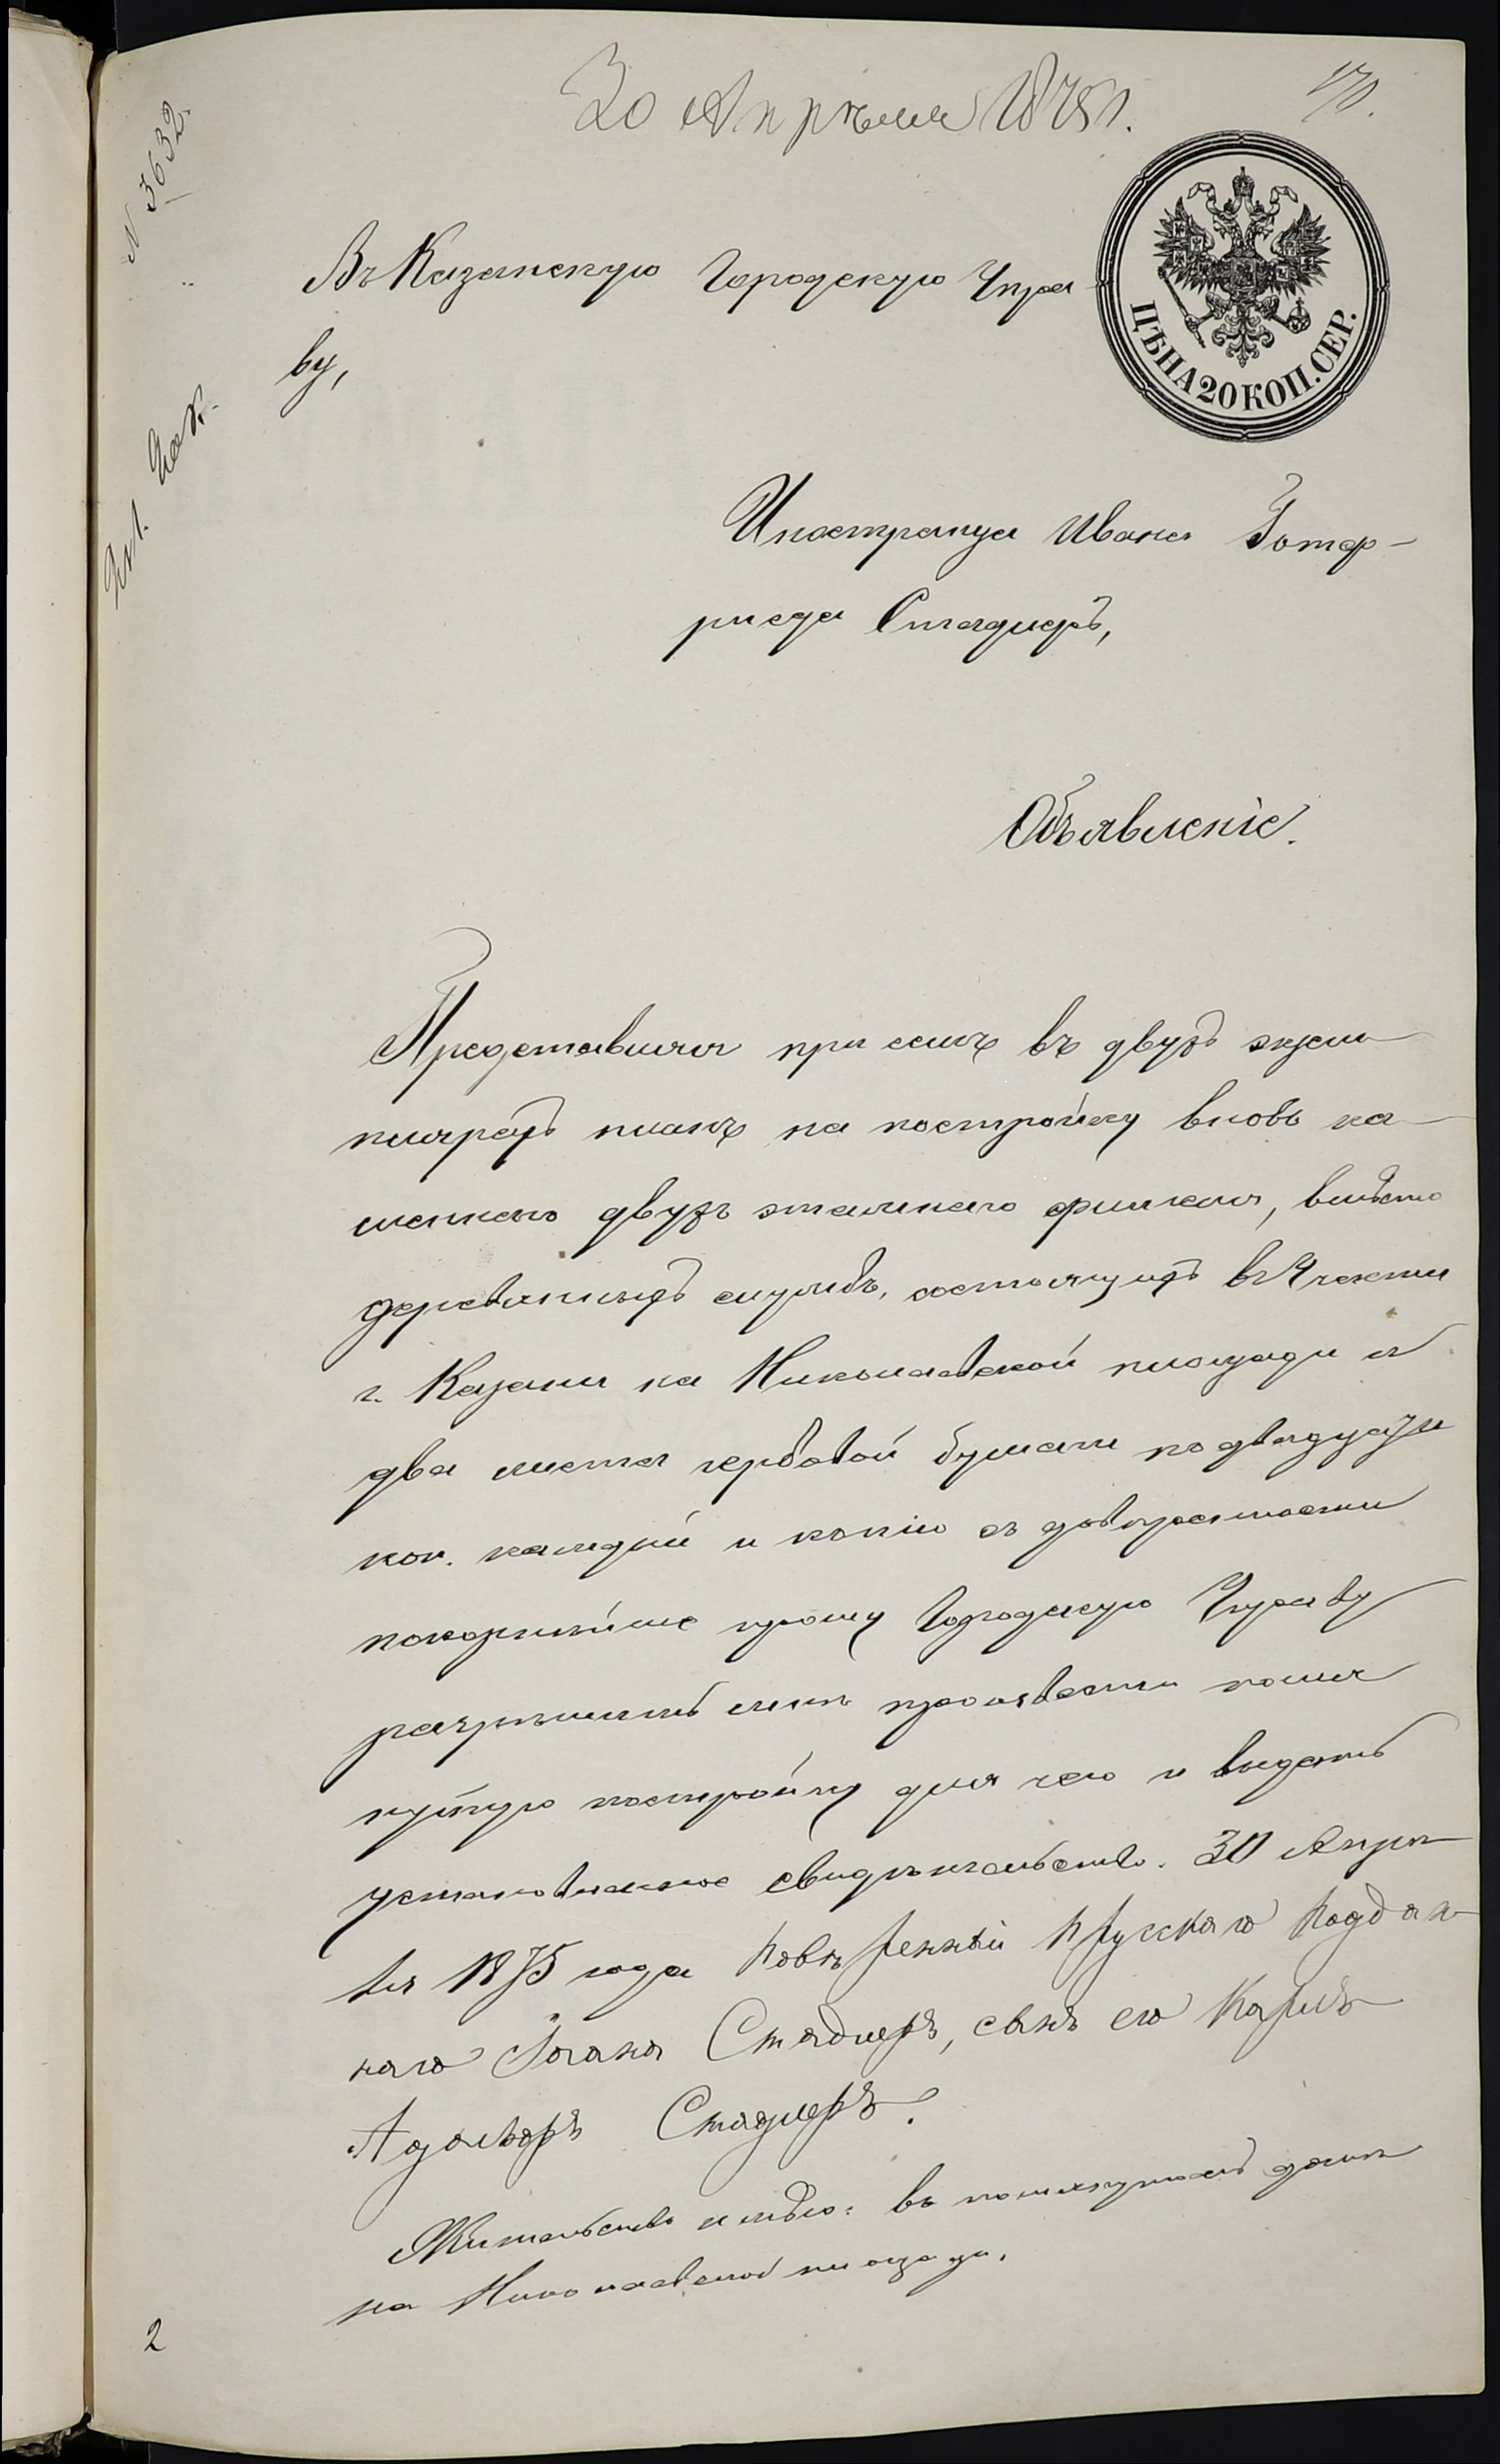 30 Апрѣля 1875 г.
170.
N 3632.
Въ Казанскую Городскую Упра
ву,
ЦѢНА 20 КОП. СЕР.
Иностранца Ивана Готф-
рида Стадлеръ,
Объявленіе.
Представляя при семъ въ двухъ экзем
плярахъ планъ на постройку вновь ка
меннаго двухъ этажнаго флигеля, вмѣсто
деревянныхъ службъ, состоящихъ въ 4 части
г. Казани на Николаевской площади и
два листа гербовой бумаги по двадцати
коп. каждый и копію съ довѣренности
покорнѣйше прошу Городскую Управу
разрѣшить мнѣ произвести помя
нутую постройку для чего и выдать
установленное свидѣтельство. 30 Апрѣ
ля 1875 года Повѣренный Прусскаго Поддан
наго Іогана Стадлеръ, сынъ его Карлъ
Адольфъ Стадлеръ.
Жительство имѣю: въ помянутомъ домѣ
на Николаевской площади.
2